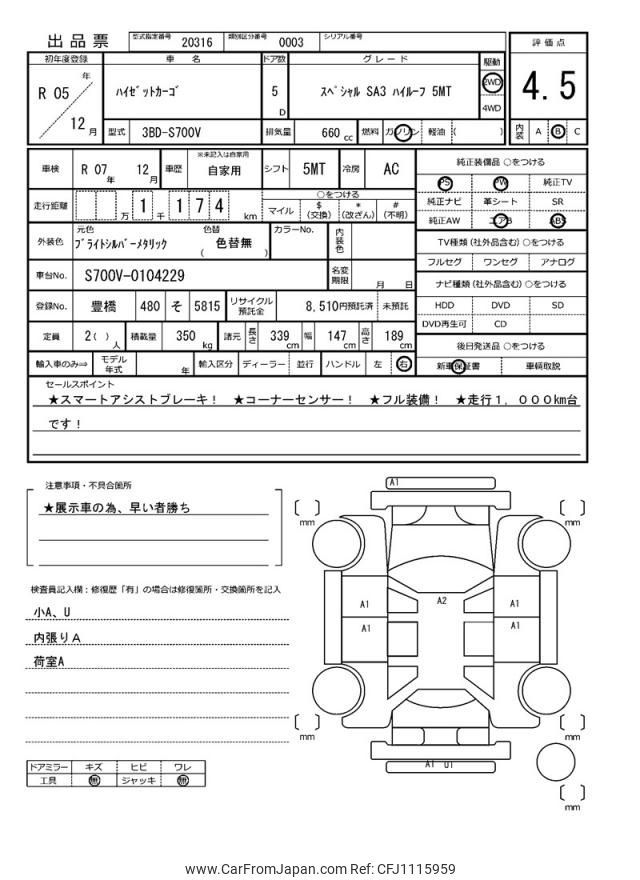 出品票 型式指定番号 20316 類別区分番号 0003 シリアル番号
評価点
初年度登録 車 名 ドア数 グレード 駆動
R 05 年 12 月
ﾊｲｾﾞｯﾄｶｰｺﾞ 5 D ｽﾍﾟｼｬﾙ SA3 ﾊｲﾙｰﾌ 5MT 2WD 4WD
4.5
型式 3BD-S700V 排気量 660 cc 燃料 ガソリン 軽油 ( )
内装 A B C
車検 R 07 年 12 月 車歴 ※未記入は自家用 自家用 シフト 5MT 冷房 AC
走行距離 万 1 千 1 7 4 km ○をつける マイル $ (交換) * (改ざん) # (不明)
外装色 元色 ﾌﾞﾗｲﾄｼﾙﾊﾞｰﾒﾀﾘｯｸ 色替 ( 色替無 ) カラーNo. 内装色
車台No. S700V-0104229 名変期限 月 日
登録No. 豊橋 480 そ 5815 リサイクル預託金 8,510円預託済 未預託
定員 2( ) 人 積載量 350 kg 諸元 長さ 339 cm 幅 147 cm 高さ 189 cm
輸入車のみ⇒ モデル年式 年 輸入区分 ディーラー 並行 ハンドル 左 右
純正装備品 ○をつける
PS PW 純正TV
純正ナビ 革シート SR
純正AW エアB ABS
TV種類 (社外品含む) ○をつける
フルセグ ワンセグ アナログ
ナビ種類 (社外品含む) ○をつける
HDD DVD SD
DVD再生可 CD
後日発送品 ○をつける
新車保証書 車輌取説
セールスポイント
★スマートアシストブレーキ！ ★コーナーセンサー！ ★フル装備！ ★走行１．０００㎞台
です！
注意事項・不具合箇所
★展示車の為、早い者勝ち
検査員記入欄：修復歴「有」の場合は修復箇所・交換箇所を記入
小A、U
内張りＡ
荷室A
ドアミラー キズ ヒビ ワレ
工具 無 ジャッキ 無
A1
mm mm
A1 A2 A1
A1 A1
mm mm
A1 U1
mm
www.CarFromJapan.com Ref: CFJ1115959